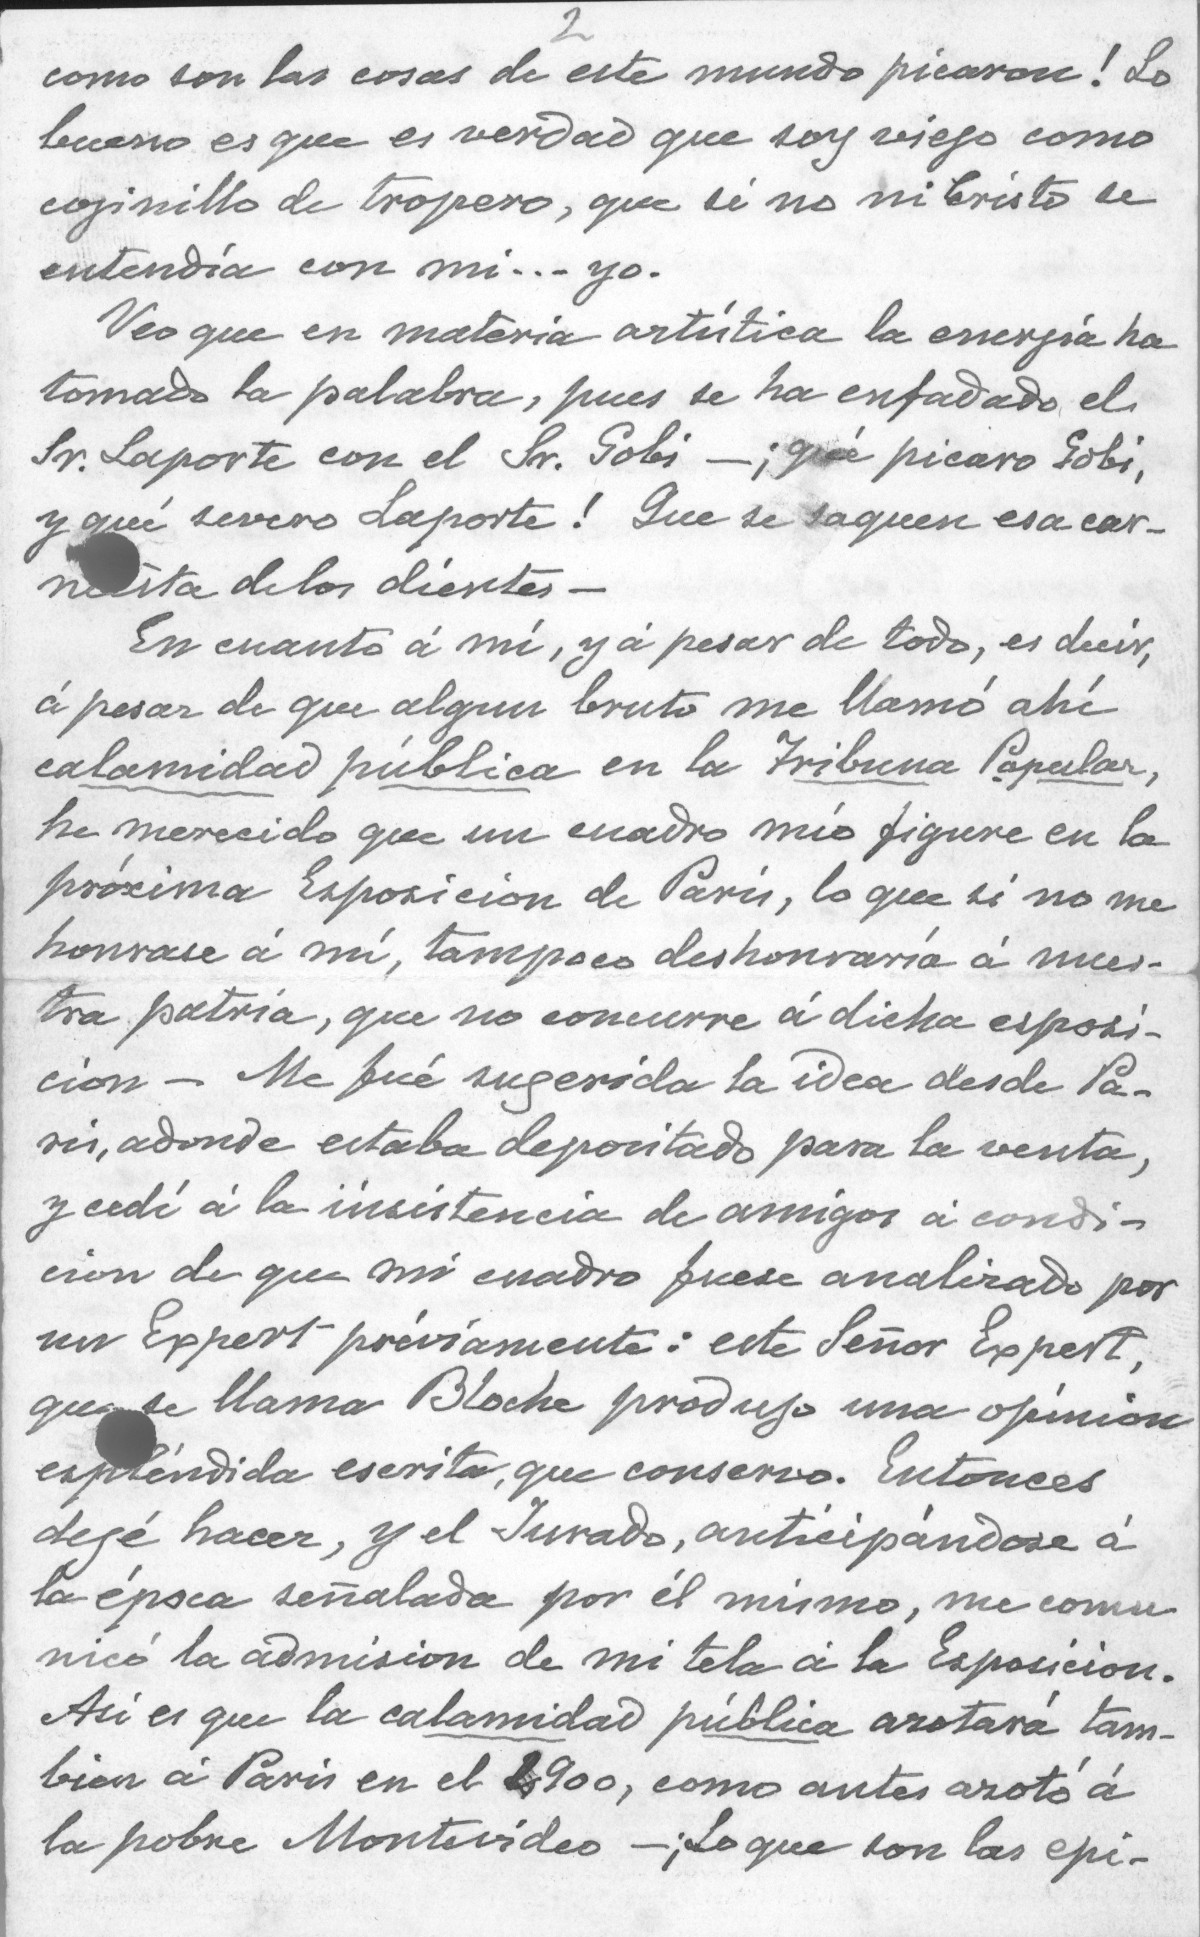 2
como son las cosas de este mundo picaron! Lo
bueno es que es verdad que soy viego como
coginillo de tropero, que si no ni Cristo se
entendía con mi... yo.
Veo que en materia artística la energía ha
tomado la palabra, pues se ha enfadado el
Sr. Laporte con el Sr. Gobi —¡qué picaro Gobi,
y qué severo Laporte! Que se saquen esa car-
nesita de los dientes —
En cuanto á mí, y á pesar de todo, es decir,
á pesar de que algun bruto me llamó ahí
calamidad pública en la Tribuna Popular,
he merecido que un cuadro mío figure en la
próxima Esposicion de Paris, lo que si no me
honrase á mí, tampoco deshonraría á nues-
tra patria, que no concurre á dicha esposi-
cion — Me fué sugerida la idea desde Pa-
ris, adonde estaba depositado para la venta,
y cedí á la insistencia de amigos á condi-
cion de que mi cuadro fuese analizado por
un Expert préviamente: este Señor Expert,
que se llama Bloche produjo una opinion
espléndida escrita, que conservo. Entonces
degé hacer, y el Jurado, anticipándose á
la época señalada por él mismo, me comu
nicó la admision de mi tela á la Esposicion.
Asi es que la calamidad pública azotará tam-
bien á Paris en el 1900, como antes azotó á
la pobre Montevideo —¡Lo que son las epi-